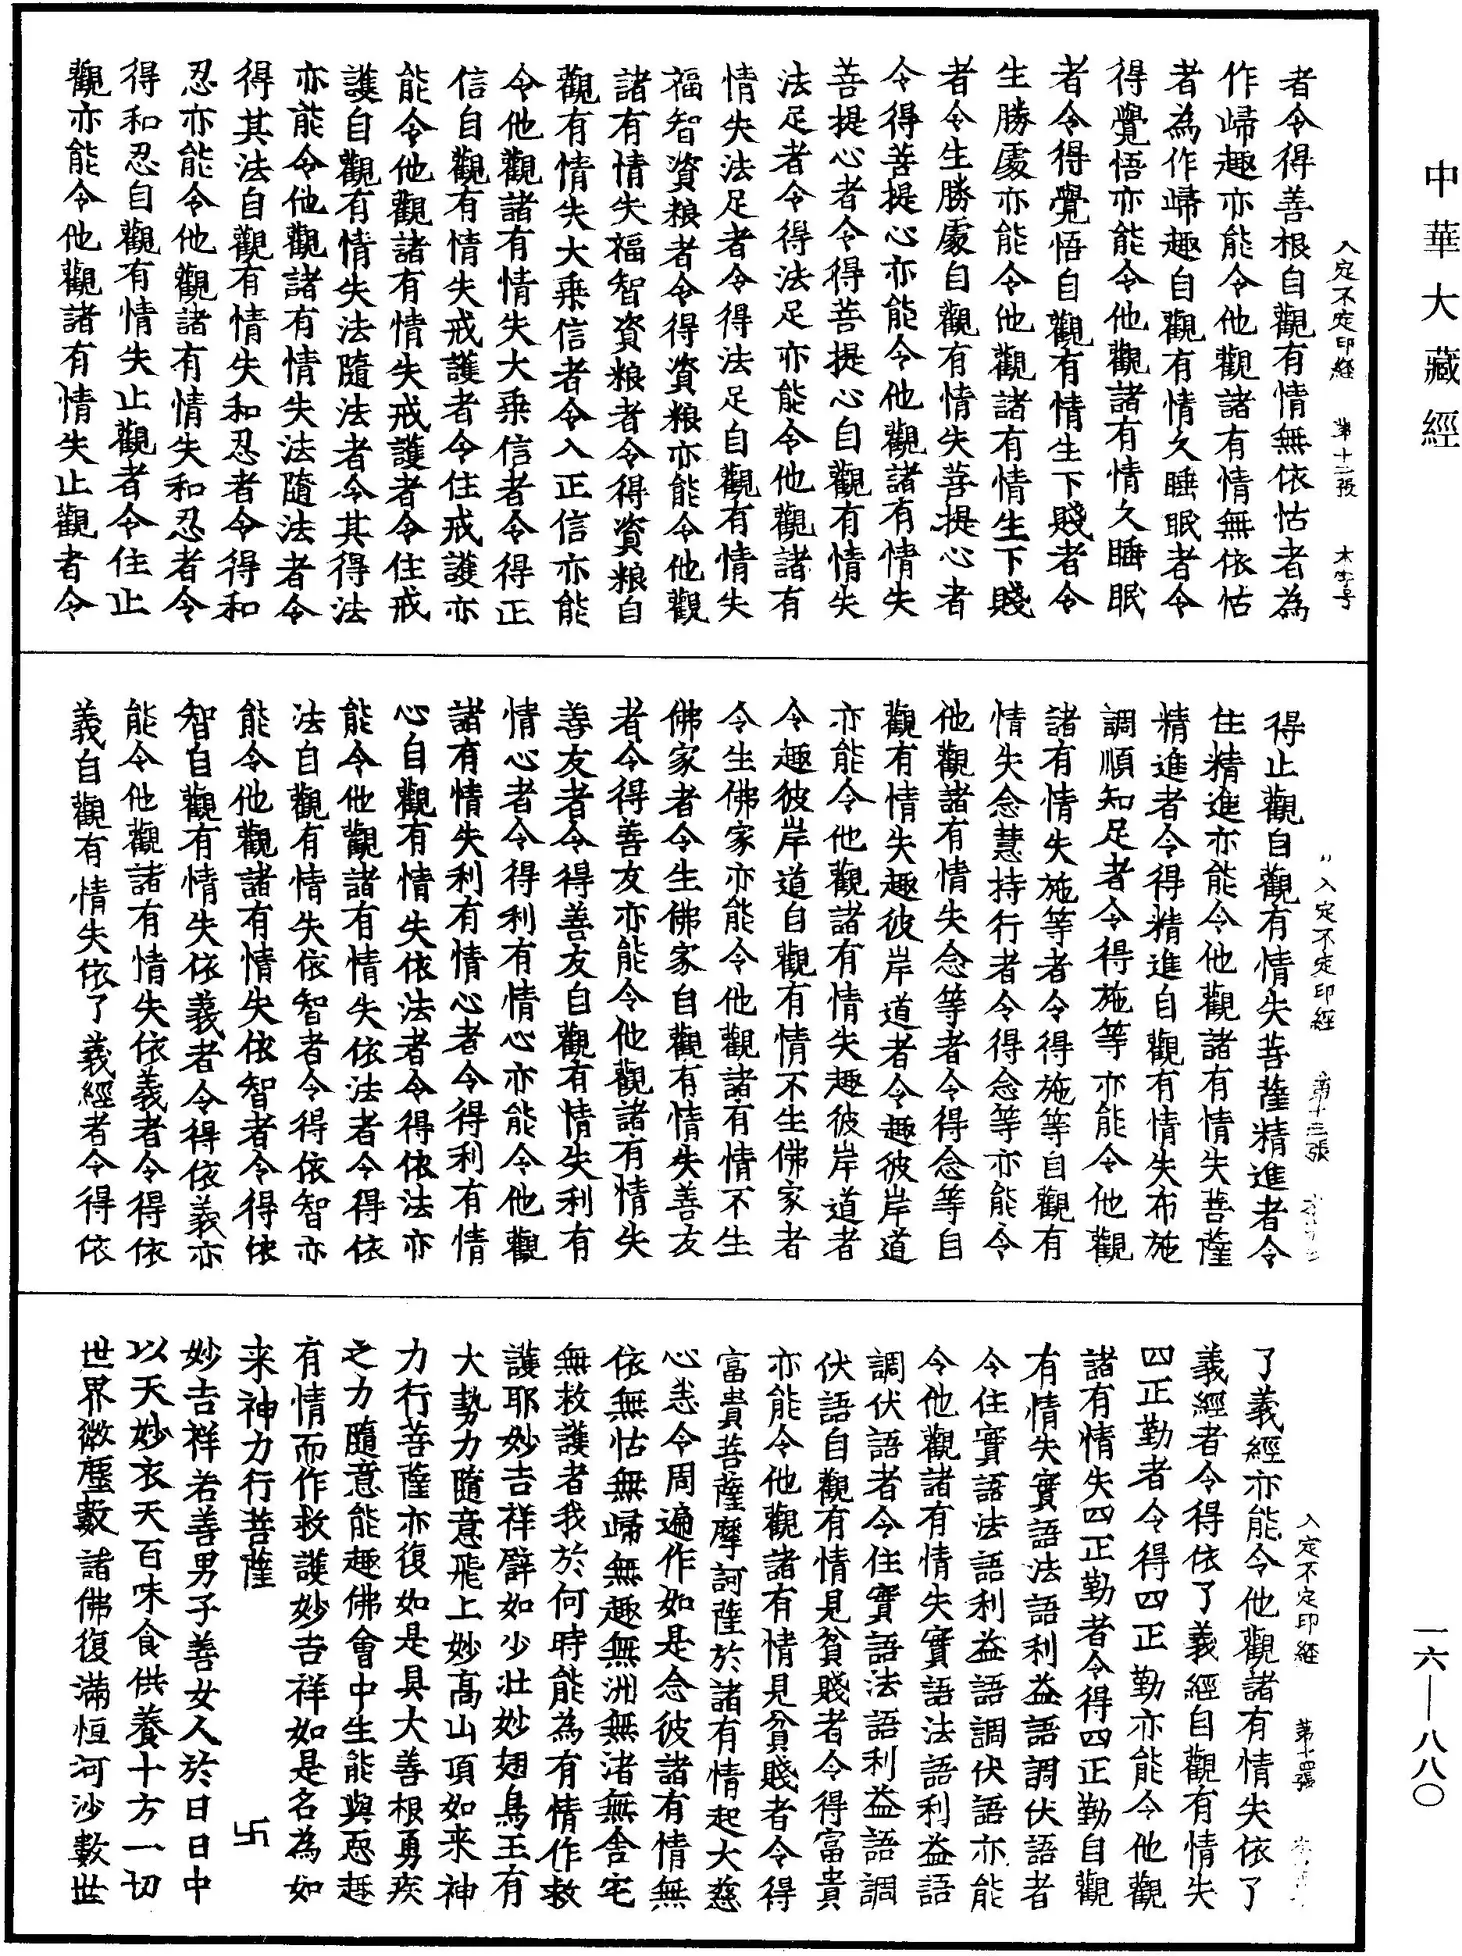 中華大藏經
入定不定印經　第十二張　木字号
者令得善根自觀有情無依怙者為
作歸趣亦能令他觀諸有情無依怙
者為作歸趣自觀有情久睡眠者令
得覺悟亦能令他觀諸有情久睡眠
者令得覺悟自觀有情生下賤者令
生勝處亦能令他觀諸有情生下賤
者令生勝處自觀有情失菩提心者
令得菩提心亦能令他觀諸有情失
菩提心者令得菩提心自觀有情失
法足者令得法足亦能令他觀諸有
情失法足者令得法足自觀有情失
福智資粮者令得資粮亦能令他觀
諸有情失福智資粮者令得資粮自
觀有情失大乘信者令入正信亦能
令他觀諸有情失大乘信者令得正
信自觀有情失戒護者令住戒護亦
能令他觀諸有情失戒護者令住戒
護自觀有情失法隨法者令其得法
亦能令他觀諸有情失法隨法者令
得其法自觀有情失和忍者令得和
忍亦能令他觀諸有情失和忍者令
得和忍自觀有情失止觀者令住止
觀亦能令他觀諸有情失止觀者令
入定不定印經　第十三張
得止觀自觀有情失菩薩精進者令
住精進亦能令他觀諸有情失菩薩
精進者令得精進自觀有情失布施
調順知足者令得施等亦能令他觀
諸有情失施等者令得施等自觀有
情失念慧持行者令得念等亦能令
他觀諸有情失念等者令得念等自
觀有情失趣彼岸道者令趣彼岸道
亦能令他觀諸有情失趣彼岸道者
令趣彼岸道自觀有情不生佛家者
令生佛家亦能令他觀諸有情不生
佛家者令生佛家自觀有情失善友
者令得善友亦能令他觀諸有情失
善友者令得善友自觀有情失利有
情心者令得利有情心亦能令他觀
諸有情失利有情心者令得利有情
心自觀有情失依法者令得依法亦
能令他觀諸有情失依法者令得依
法自觀有情失依智者令得依智亦
能令他觀諸有情失依智者令得依
智自觀有情失依義者令得依義亦
能令他觀諸有情失依義者令得依
義自觀有情失依了義經者令得依
入定不定印經　第十四張
了義經亦能令他觀諸有情失依了
義經者令得依了義經自觀有情失
四正勤者令得四正勤亦能令他觀
諸有情失四正勤者令得四正勤自觀
有情失實語法語利益語調伏語者
令住實語法語利益語調伏語亦能
令他觀諸有情失實語法語利益語
調伏語者令住實語法語利益語調
伏語自觀有情見貧賤者令得富貴
亦能令他觀諸有情見貧賤者令得
富貴菩薩摩訶薩於諸有情起大慈
心恙令周遍作如是念彼諸有情無
依無怙無歸無趣無洲無渚無舍宅
無救護者我於何時能為有情作救
護耶妙吉祥譬如少壯妙翅鳥王有
大勢力隨意飛上妙高山頂如来神
力行菩薩亦復如是具大善根勇疾
之力隨意能趣佛會中生能與惡趣
有情而作救護妙吉祥如是名為如
来神力行菩薩　卐
妙吉祥若善男子善女人於日日中
以天妙衣天百味食供養十方一切
世界微塵數諸佛復滿恒河沙數世
一六—八八〇